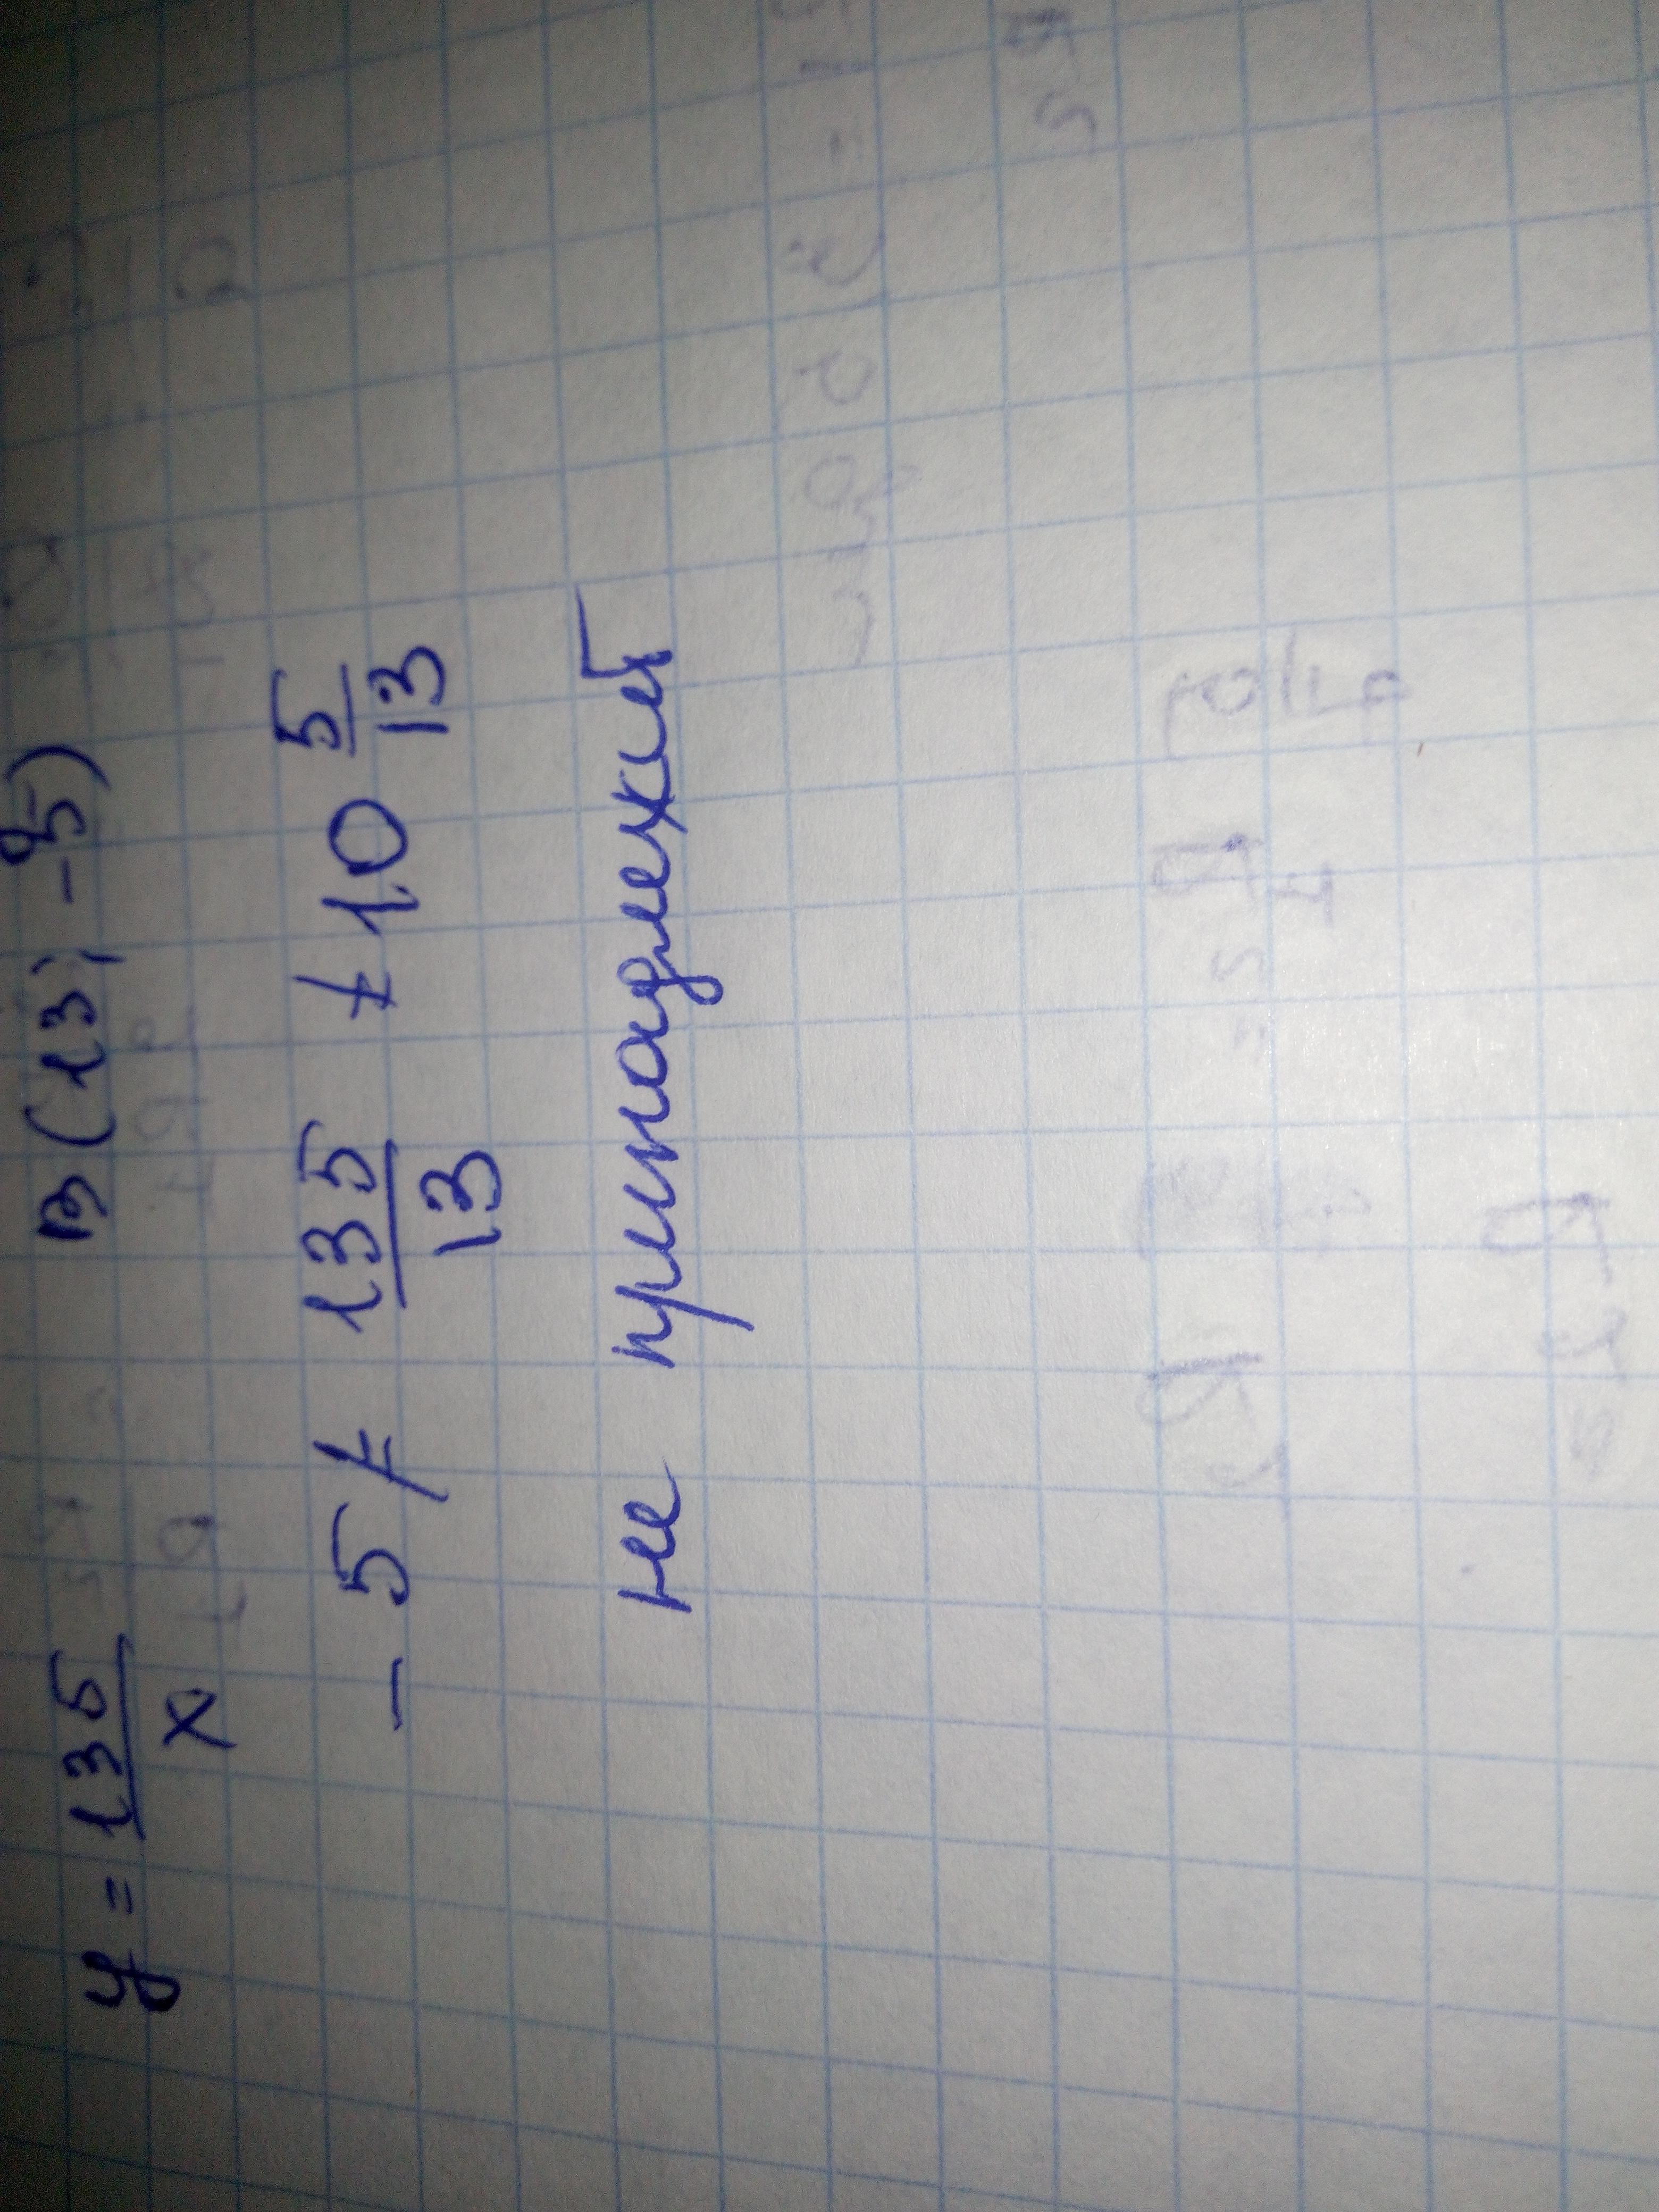 y = 135/x В (13; -5)
- 5 ≠ 135/13 ≠ 10 5/13
не принадлежит